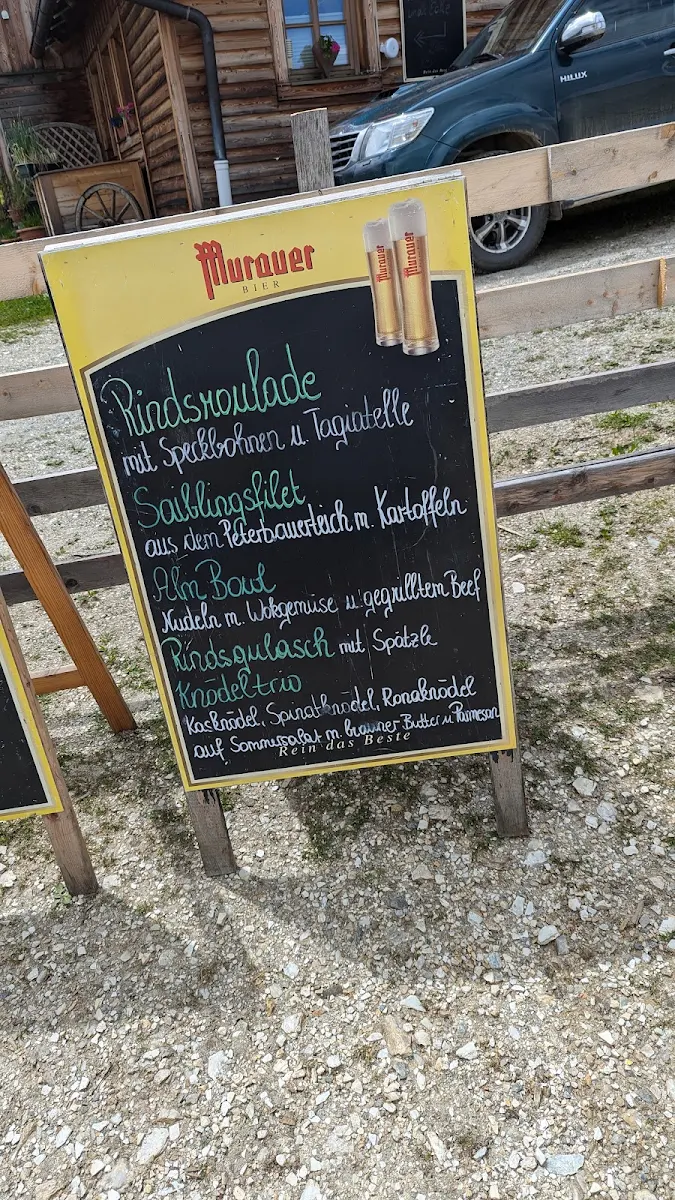 HILUX
Murauer
BIER
Murauer
Murauer
Rindsroulade
mit Speckbohnen u Tagiatelle
Saiblingsfilet
aus dem Peterbauerteich m. Kartoffeln
Alm Bowl
Nudeln m. Wokgemüse u gegrilltem Beef
Rindsgulasch mit Spätzle
Knödeltrio
Kasknödel, Spinatknödel, Ronaknödel
auf Sommersalat m. brauner Butter u Parmesan
Rein das Beste